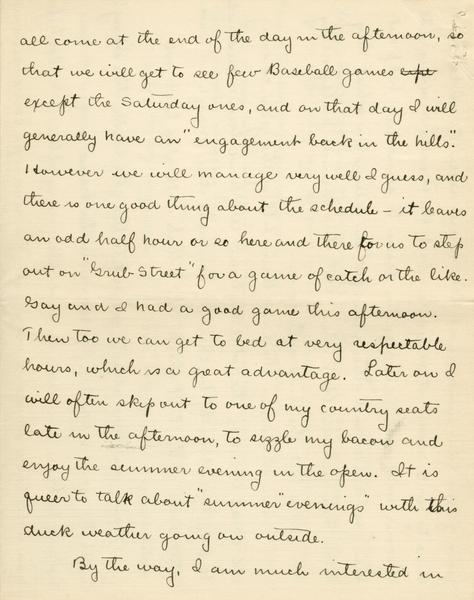 all come at the end of the day in the afternoon, so
that we will get to see few Baseball games expt
except the Saturday ones, and on that day I will
generally have an "engagement back in the hills".
However we will manage very well I guess, and
there is one good thing about the schedule – it leaves
an odd half hour or so here and there for us to step
out on "Grub Street" for a game of catch or the like.
Gay and I had a good game this afternoon.
Then too we can get to bed at very respectable
hours, which is a great advantage. Later on I
will often skip out to one of my country seats
late in the afternoon, to sizzle my bacon and
enjoy the summer evening in the open. It is
queer to talk about "summer evenings" with this
duck weather going on outside.
By the way, I am much interested in